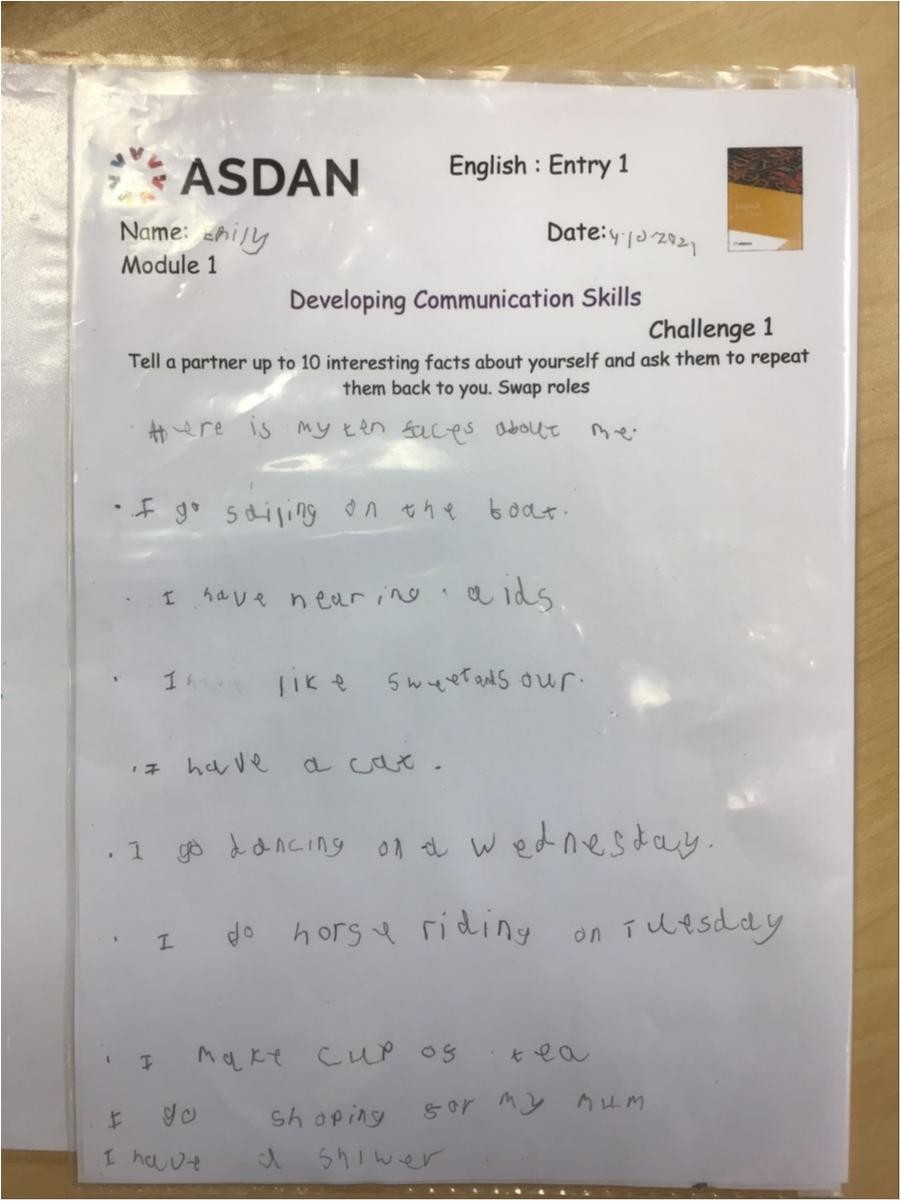 ASDAN
English : Entry 1
Name: Emily
Date: 4-10-2021
Module 1
Developing Communication Skills
Challenge 1
Tell a partner up to 10 interesting facts about yourself and ask them to repeat
them back to you. Swap roles
Here is my ten faces about me.
· I go sailing on the boat.
· I have hearing aids.
· I like sweet and sour.
· I have a cat.
· I go dancing on a Wednesday.
· I do horse riding on Tuesday
· I make cup of tea
I go shoping for my mum
I have a shiwer